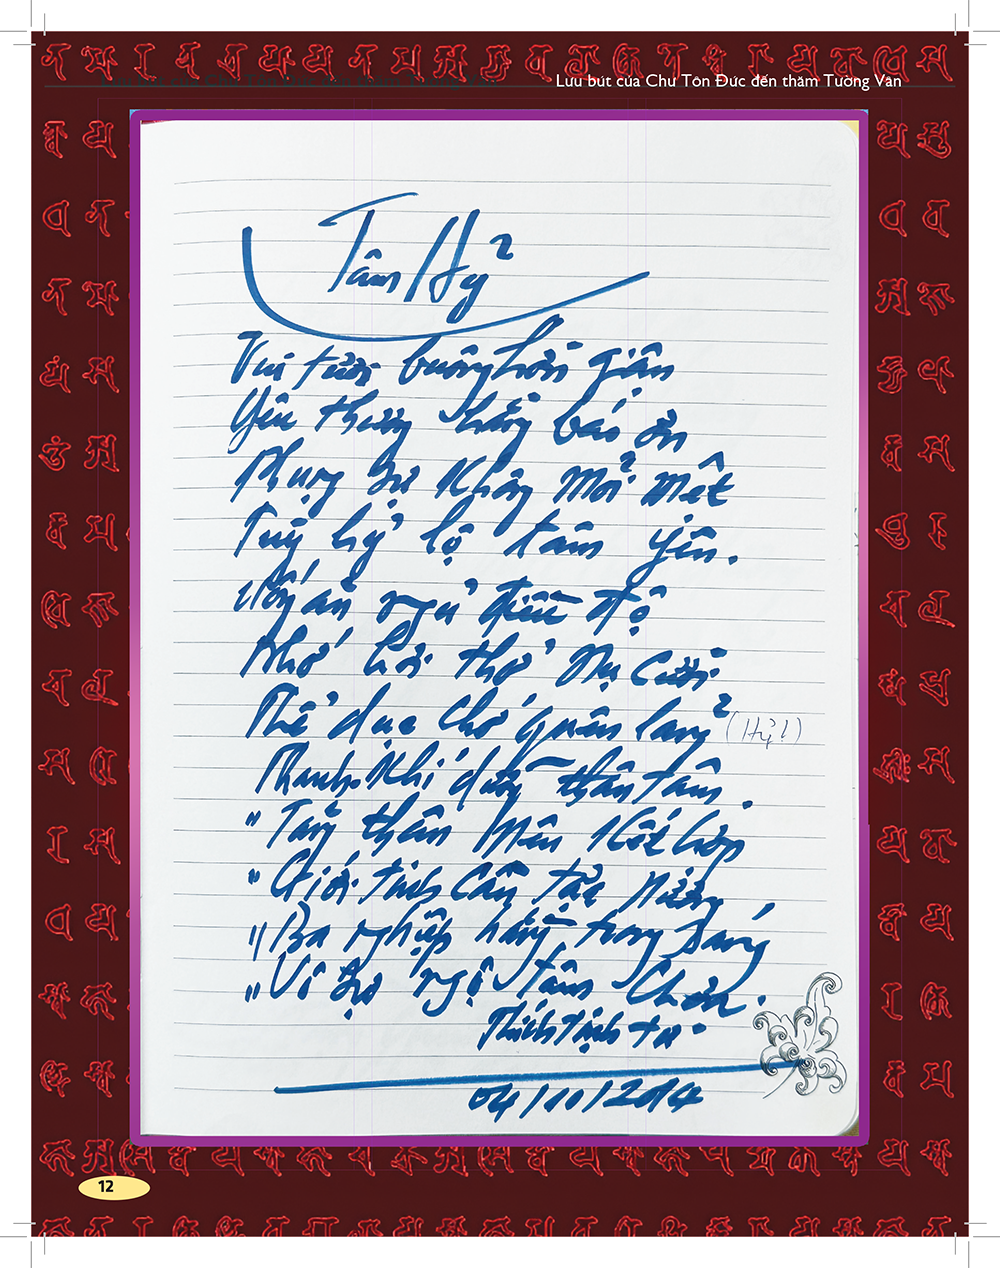 Lưu bút của Chư Tôn Đức đến thăm Tường Vân
Tâm Hỷ
Vui tươi buông hờn giận
Yêu thương hằng báo ơn
Phụng sự không mỏi mệt
Tùy hỷ lộ tâm yên.
Uống ăn ngủ điều độ
Nhớ hơi thở nụ cười
Thể dục chớ quên lãng (Hỷ!)
Thanh khí dưỡng thân tâm.
"Tăng thân mến kết hợp
"Giới tính cần tựa nương
"Ba nghiệp hằng trong sáng
"Vô sự ngộ tâm chơn.
Thích tịnh từ
04/10/2014
12